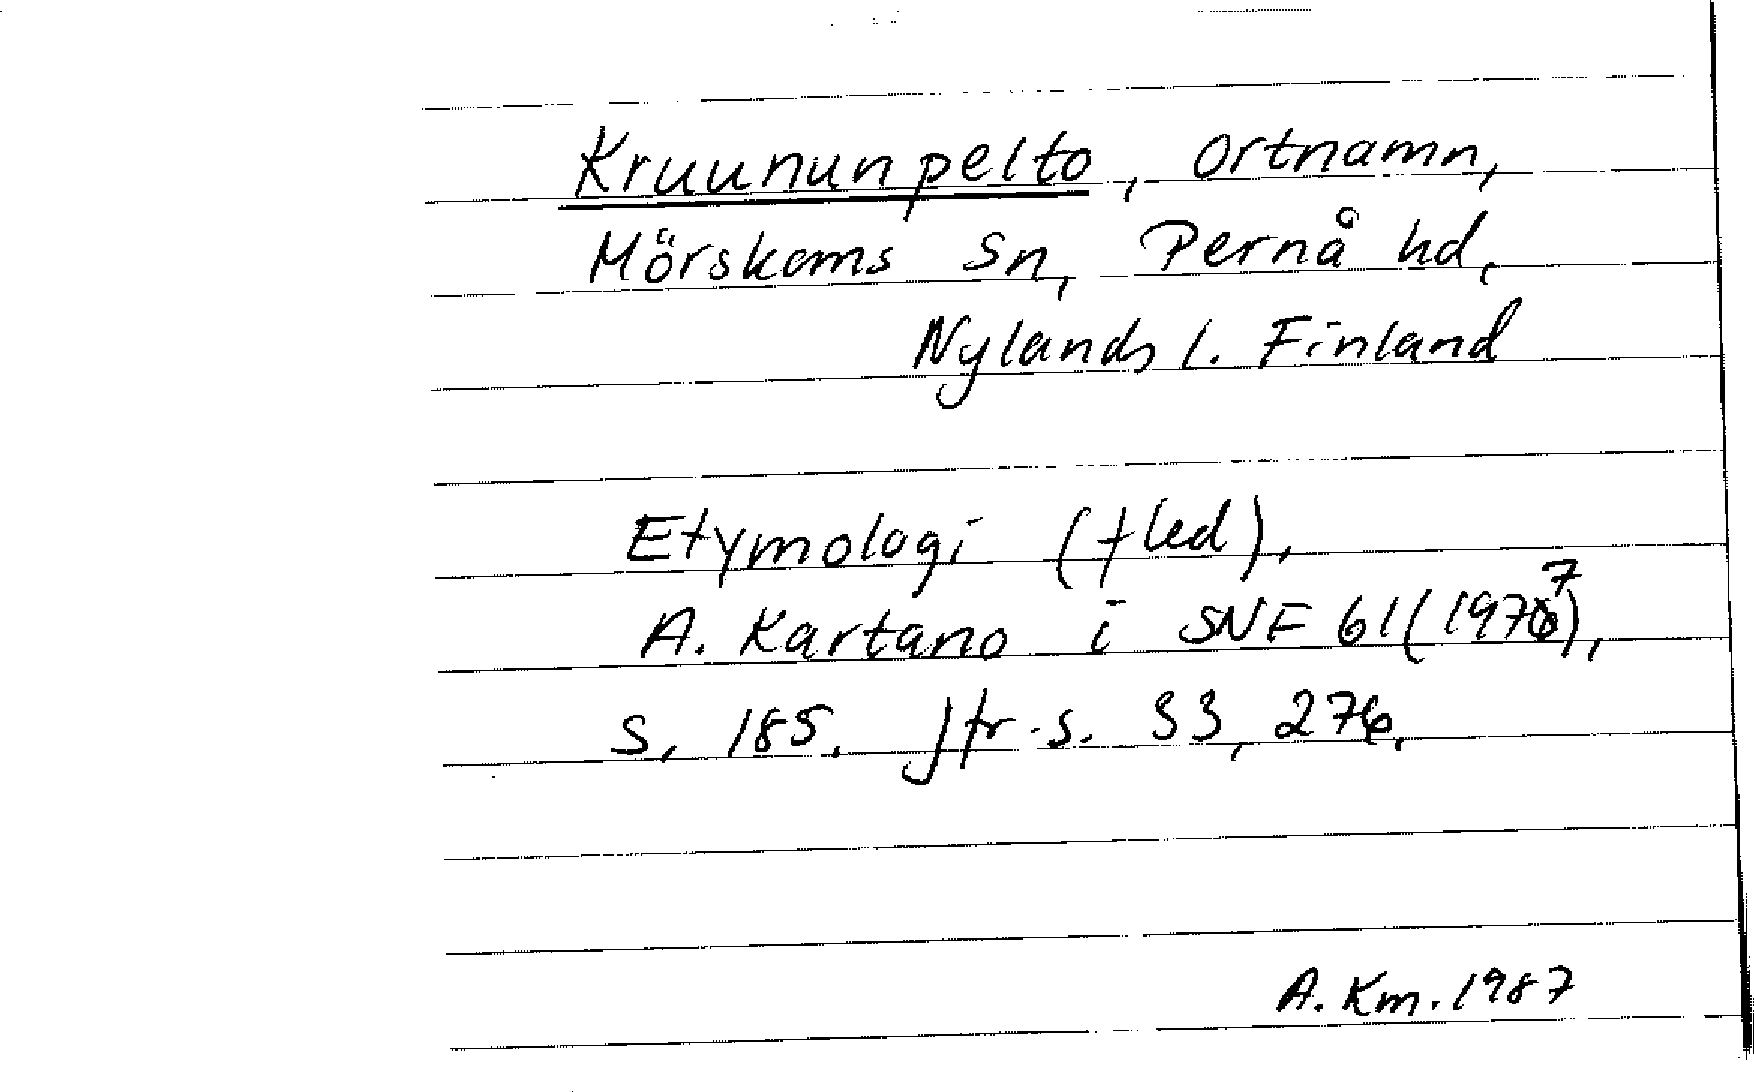 Kruununpelto, ortnamn,
Mörskoms sn, Pernå hd,
Nylands l. Finland
Etymologi (fled),
A. Kartano i SNF 61 (1977),
s. 185. Jfr s. 33, 276.
A. Km. 1987